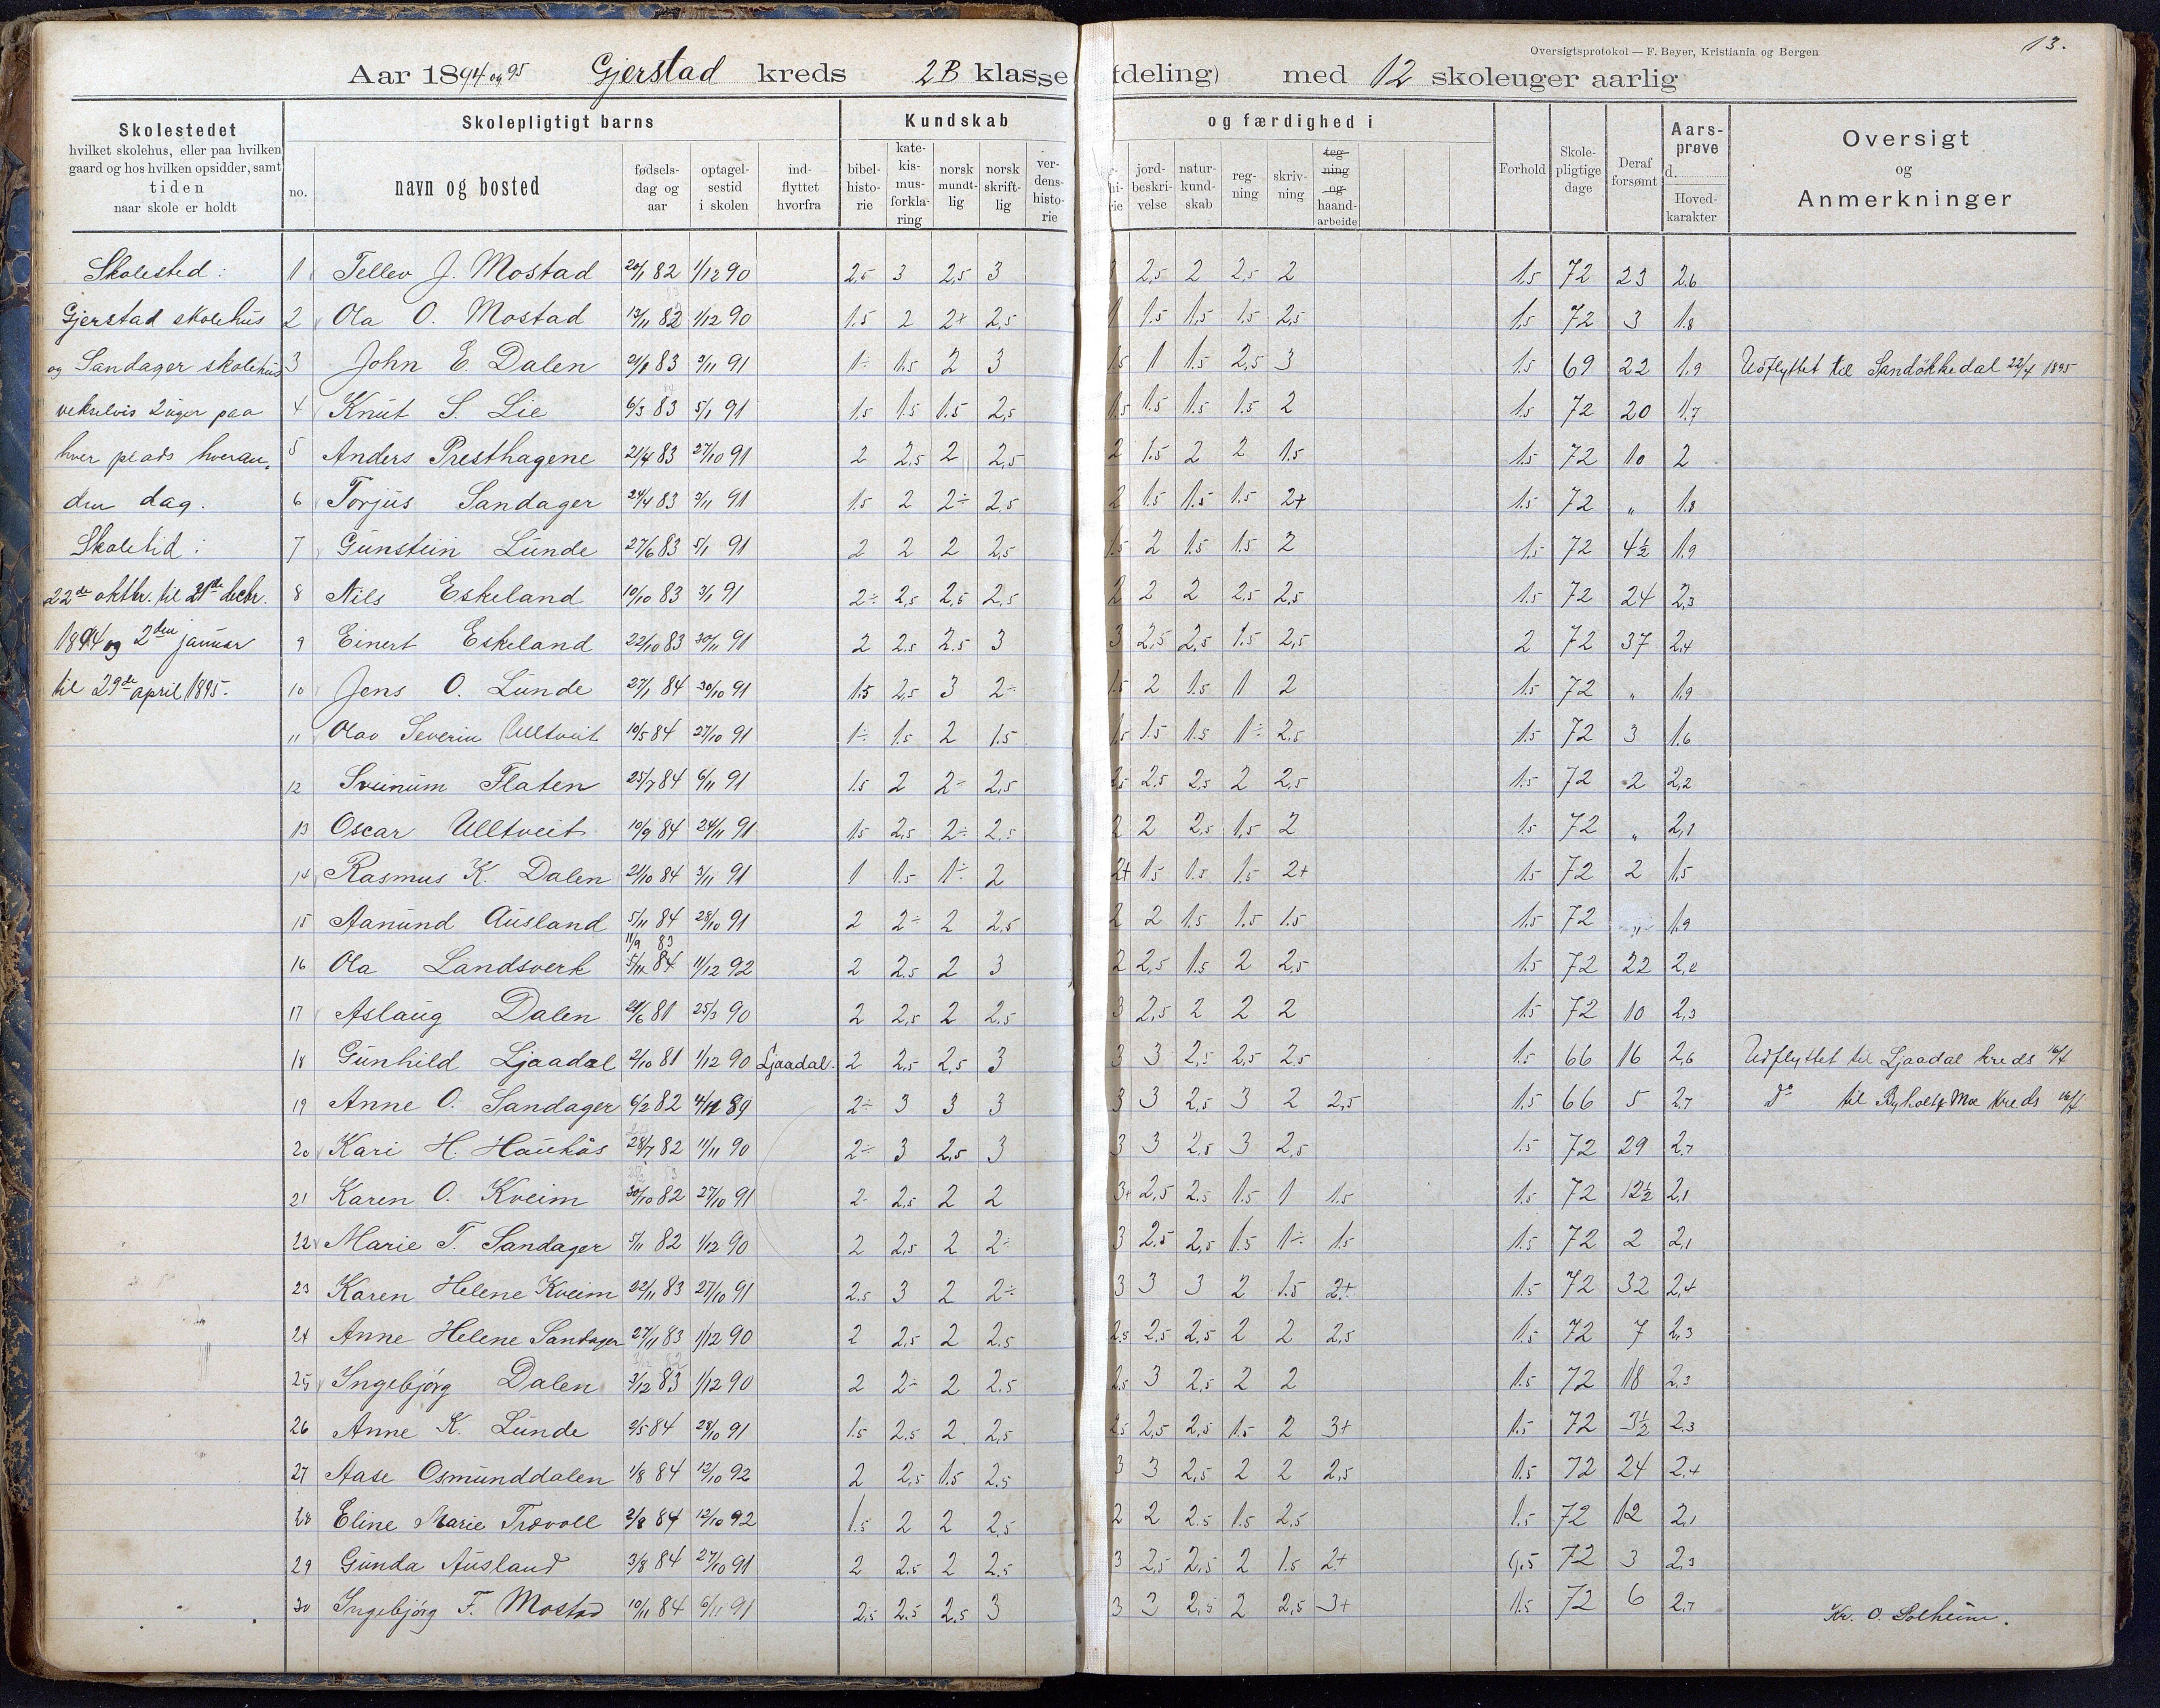 Oversigtsprotokol — F. Beyer, Kristiania og Bergen
13.
Aar 1894 og 95 Gjerstad kreds 2B klasse (deling) med 12 skoleuger aarlig
Skolestedet
hvilket skolehus, eller paa hvilken
gaard og hos hvilken opsidder, samt
tiden
naar skole er holdt
Skolepligtigt barns
no.
navn og bosted
fødsels-
dag og
aar
optagel-
sestid
i skolen
ind-
flyttet
hvorfra
Kundskab og færdighed i
bibel-
histo-
rie
kate-
kis-
mus-
forkla-
ring
norsk
mundt-
lig
norsk
skrift-
lig
ver-
dens-
histo-
rie
jord-
beskri-
velse
natur-
kund-
skab
reg-
ning
skriv-
ning
teg-
ning
og
haand-
arbeide
Forhold
Skole-
pligtige
dage
Deraf
forsømt
Aars-
prøve
d.
Hoved-
karakter
Oversigt
og
Anmerkninger
Skolested:
Gjerstad skolehus
og Sandager skolehus
vekselvis 2 uger paa
hver plads hveran-
den dag.
Skoletid:
22de oktbr. til 21de decbr.
1894 og 2den januar
til 29de april 1895.
1 Tellev J. Mostad 20/1 82 1/12 90 2,5 3 2,5 3 2,5 2 2,5 2 1,5 72 23 2,6
2 Ola O. Mostad 13/11 82 1/12 90 1.5 2 2+ 2,5 1.5 1,5 1.5 2,5 1,5 72 3 1.8
3 John E. Dalen 21/1 83 3/11 91 1÷ 1.5 2 3 1.5 1 1.5 2,5 3 1.5 69 22 1.9 Udflyttet til Sandökkedal 22/4 1895
4 Knut S. Lie 6/3 83 5/1 91 1.5 1.5 1.5 2,5 1.5 1.5 1.5 1.5 2 1.5 72 20 1.7
5 Anders Presthagene 21/4 83 27/10 91 2 2,5 2 2,5 2 1.5 2 2 1.5 1.5 72 10 2
6 Torjus Sandager 24/4 83 3/11 91 1.5 2 2÷ 2,5 2 1.5 1.5 1.5 2+ 1.5 72 " 1.8
7 Gunstein Lunde 27/6 83 5/1 91 2 2 2 2,5 1.5 2 1.5 1.5 2 1.5 72 4½ 1.9
8 Nils Eskeland 10/10 83 3/1 91 2÷ 2,5 2,5 2,5 2 2 2 2,5 2,5 1.5 72 24 2,3
9 Einert Eskeland 22/10 83 30/11 91 2 2.5 2.5 3 3 2,5 2,5 1.5 2,5 2 72 37 2,4
10 Jens O. Lunde 27/1 84 30/10 91 1.5 2,5 3 2÷ 1.5 2 1.5 1 2 1.5 72 " 1.9
11 Olav Severin Ulltveit 10/5 84 27/10 91 1÷ 1.5 2 1.5 1.5 1.5 1.5 1÷ 2,5 1.5 72 3 1.6
12 Sveinum Flaten 25/7 84 6/11 91 1.5 2 2÷ 2,5 2,5 2,5 2,5 2 2,5 1.5 72 2 2,2
13 Oscar Ulltveit 10/9 84 24/11 91 1.5 2,5 2÷ 2,5 2 2 2,5 1,5 2 1.5 72 " 2,1
14 Rasmus K. Dalen 21/10 84 3/11 91 1 1.5 1÷ 2 2+ 1.5 1.5 1.5 2+ 1.5 72 2 1,5
15 Aanund Ausland 5/11 84 28/10 91 2 2÷ 2 2,5 2 2 1.5 1.5 1.5 1.5 72 " 1.9
11/9 83
16 Ola Landsverk 5/11 84 11/12 92 2 2.5 2 3 2 2,5 1.5 2 2,5 1.5 72 22 2,2
17 Aslaug Dalen 21/6 81 25/3 90 2 2,5 2 2.5 3 2,5 2 2 2 1.5 72 10 2,3
18 Gunhild Ljaadal 2/10 81 1/12 90 Ljaadal. 2 2,5 2,5 3 3 3 2,5 2,5 2,5 1.5 66 16 2,6 Udflyttet til Ljaadal kreds 16/4
19 Anne O. Sandager 6/2 82 4/11 89 2÷ 3 3 3 3 3 2,5 3 2 2,5 1.5 66 5 2,7 do til Moe kreds 16/4
20 Kari H. Haukås 28/7 82 11/11 90 2÷ 3 2,5 3 3 3 2,5 3 2,5 1.5 72 29 2,7
21 Karen O. Kveim 30/10 82 27/10 91 2÷ 2,5 2 2 3+ 2,5 2.5 1.5 1 1.5 1.5 72 12½ 2,1
22 Marie T. Sandager 5/11 82 1/12 90 2 2,5 2 2÷ 3 2.5 2,5 1.5 1÷ 1.5 1.5 72 2 2,1
23 Karen Helene Kveim 22/11 83 27/10 91 2.5 3 2 2÷ 3 3 3 2 1.5 2+ 1.5 72 32 2,4
24 Anne Helene Sandager 27/11 83 1/12 90 2 2,5 2 2.5 2,5 2,5 2.5 2 2 2,5 1.5 72 7 2,3
25 Ingebjörg Dalen 3/12 83 1/12 90 2 2÷ 2 2.5 2,5 3 2,5 2 2 1.5 72 18 2,3
26 Anne K. Lunde 2/5 84 28/10 91 1.5 2,5 2 2,5 2,5 2,5 2,5 1.5 2 3+ 1.5 72 3½ 2,3
27 Aase Osmunddalen 1/8 84 12/10 92 2 2,5 1.5 2.5 3 3 2,5 2 2 2,5 1.5 72 24 2,4
28 Eline Marie Trævoll 2/8 84 12/10 92 1.5 2 2 2,5 2 2 2.5 1.5 2,5 1.5 72 12 2,1
29 Gunda Ausland 3/8 84 27/10 91 2 2.5 2 2.5 3 2,5 2,5 2 1.5 2+ 1,5 72 3 2,3
30 Ingebjörg F. Mostad 10/11 84 6/11 91 2,5 2.5 2.5 3 3 3 2,5 2 2,5 3+ 1.5 72 6 2,7
Kr. O. Solheim.